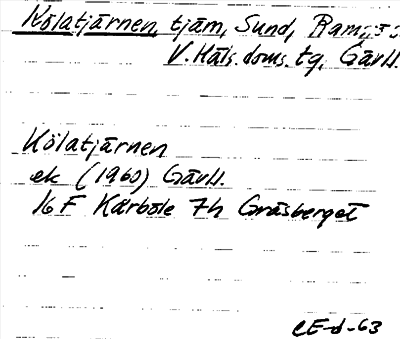 Kölatjärnen, tjärn, Sund, Ramsjö
V. Häls. doms. tg, Gävl.
Kölatjärnen
ek (1960) Gävl.
16F Kårböle 7h Gråsberget
CE-d-63